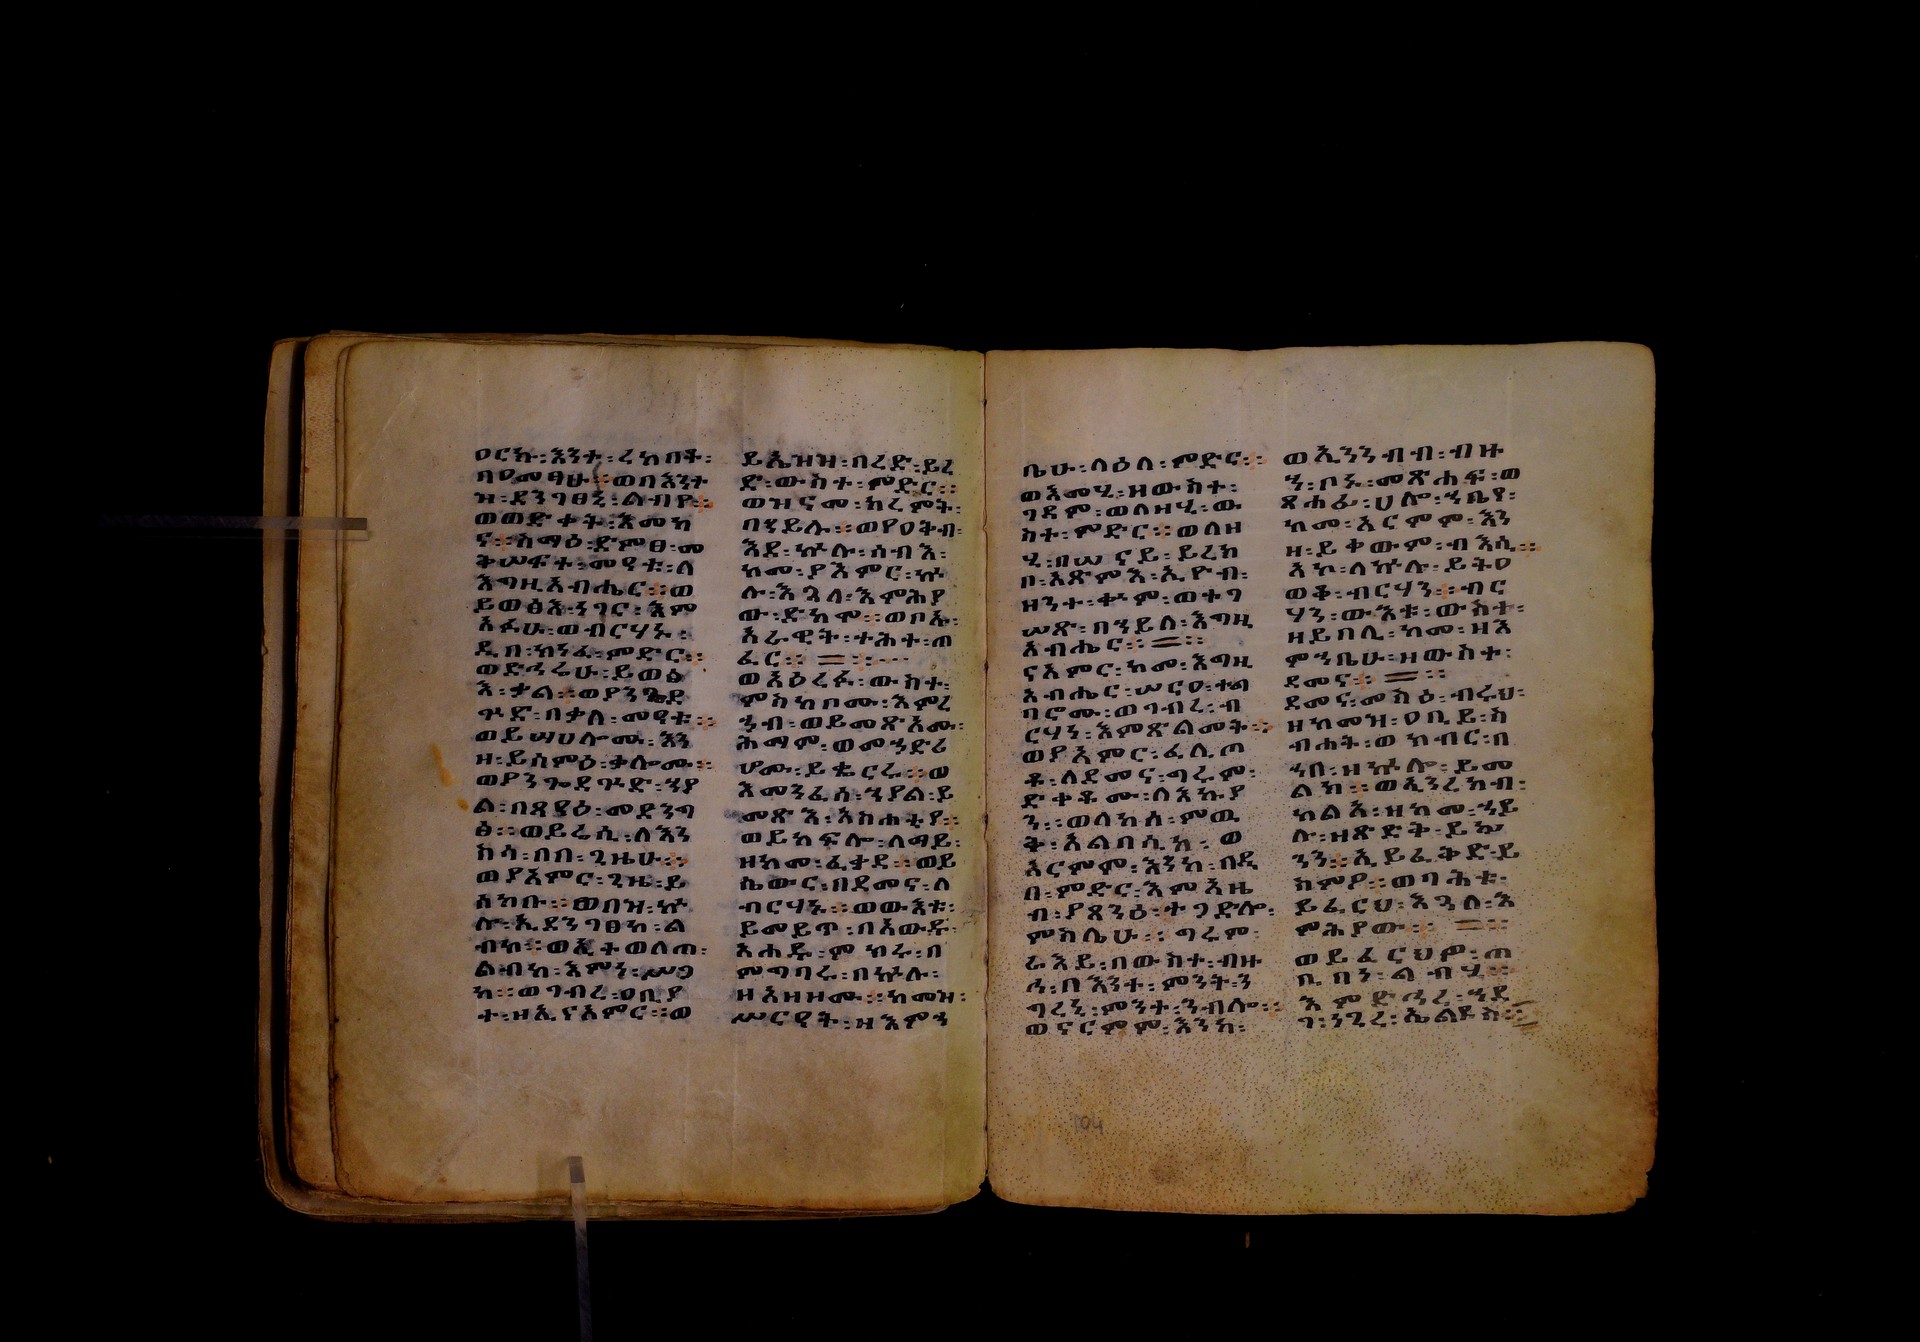 ዐርኩ፡እንተ፡ረከበት፡
በዓመፃሁ።ወበእንተ
ዝ፡ደንገፀኒ፡ልብየ።
ወወድቀት፡እመካ
ና።ስማዕ፡ድምፀ፡መ
ቅሠፍተ፡መዓቱ፡ለ
እግዚአብሔር።ወ
ይወፅእ፡ነገር፡እም
አፉሁ፡ወብርሃኑ፡
ዲበ፡ክንፈ፡ምድር።
ወድኅሬሁ፡ይወፅ
እ፡ቃል።ወያንጐደ
ጕድ፡በቃለ፡መዓቱ።
ወይሣህሎሙ፡እን
ዘ፡ይሰምዕ፡ቃሎሙ።
ወያንጐደጕድ፡ኀያ
ል፡በጸዋዕ፡መድንግ
ፅ።ወይሬሲ፡ለእን
ስሳ፡በበ፡ጊዜሁ።
ወያአምር፡ጊዜ፡ይ
ሰክቡ።ወበዝ፡ኵ
ሉ፡ኢደንገፀከ፡ል
ብከ።ወኢተወለጠ፡
ልብከ፡እምነ፡ሥጋ
ከ።ወገብረ፡ዐቢያ
ተ፡ዘኢየአምር።ወ
ይኤዝዝ፡በረድ፡ይረ
ድ፡ውስተ፡ምድር።
ወዝናመ፡ክረምት፡
በኀይሉ።ወየዐትብ፡
እደ፡ኵሉ፡ሰብእ፡
ከመ፡ያእምር፡ኵ
ሉ፡እጓለ፡እምሕያ
ው፡ድካሞ።ወቦኡ፡
አራዊት፡ተሕተ፡ጠ
ፈር።
ወአዕረፉ፡ውስተ፡
ምስካቦሙ፡እምረ
ኀብ፡ወይመጽኦሙ፡
ሕማም፡ወመኀድሪ
ሆሙ፡ይቈርር።ወ
እመንፈሰ፡ኀያል፡ይ
መጽእ፡አስሐቲያ።
ወይከፍሎ፡ለማይ፡
ዘከመ፡ፈቃደ።ወይ
ሴውር፡በደመና፡ለ
ብርሃኑ።ወውእቱ፡
ይመይጥ፡በአውዱ፡
አሐዱ፡ምክሩ፡በ
ምግባሩ፡በኵሉ፡
ዘአዘዞሙ።ከመዝ፡
ሥርዓት፡ዘእምኀ
ቤሁ፡ላዕለ፡ምድር።
ወእመሂ፡ዘውስተ፡
ገዳም፡ወለዘሂ፡ው
ስተ፡ምድር።ወለዘ
ሂ፡በሠናይ፡ይረከ
ብ፡አጽምእ፡ኢዮብ፡
ዘንተ፡ቁም፡ወተገ
ሠጽ፡በኀይለ፡እግዚ
አብሔር።
ናአምር፡ከመ፡እግዚ
አብሔር፡ሠርዐ፡ተግ
ባሮሙ፡ወገብረ፡ብ
ርሃነ፡እምጽልመት።
ወያአምር፡ፈሊጦ
ቶ፡ለደመና፡ግሩም፡
ድቀቶሙ፡ለእኩያ
ን።ወለከሰ፡ምዉ
ት፡አልባሲከ፡ወ
አርምም፡እንከ፡በዲ
በ፡ምድር፡እምአዜ
ብ፡ያጸንዕ፡ተገድሎ፡
ምስሌሁ።ግሩም፡
ራእይ፡በውስተ፡ብዙ
ኅ፡በእንተ፡ምንት፡ን
ግረኒ፡ምንተ፡ንብሎ።
ወናርምም፡እንከ፡
ወኢንንብብ፡ብዙ
ኀ፡ቦኑ፡መጽሐፍ፡ወ
ጸሐፊ፡ሀሎ፡ኀቤየ፡
ከመ፡አርምም፡እን
ዘ፡ይቀውም፡ብእሲ።
አኮ፡ለኵሉ፡ይትዐ
ወቅ፡ብርሃን።ብር
ሃን፡ውእቱ፡ውስተ፡
ዘይበሊ፡ከመ፡ዘእ
ምኀቤሁ፡ዘውስተ፡
ደመና።
ደመና፡መስዕ፡ብሩህ፡
ዘከመዝ፡ዐቢይ፡ስ
ብሐት፡ወክብር፡በ
ኀበ፡ዘኵሎ፡ይመ
ልክ።ወኢንረክብ፡
ካልአ፡ዘከመ፡ኀይ
ሉ፡ዘጽድቅ፡ይኴ
ንን፡ኢይፈቅድ፡ይ
ስምዖ።ወባሕቱ፡
ይፈርህ፡እጓለ፡እ
ምሕያው።
ወይፈርህዎ፡ጠ
ቢበነ፡ልብሂ።
እምድኅረ፡ኀደ
ገ፡ነጊረ፡ኤልዩስ።
104